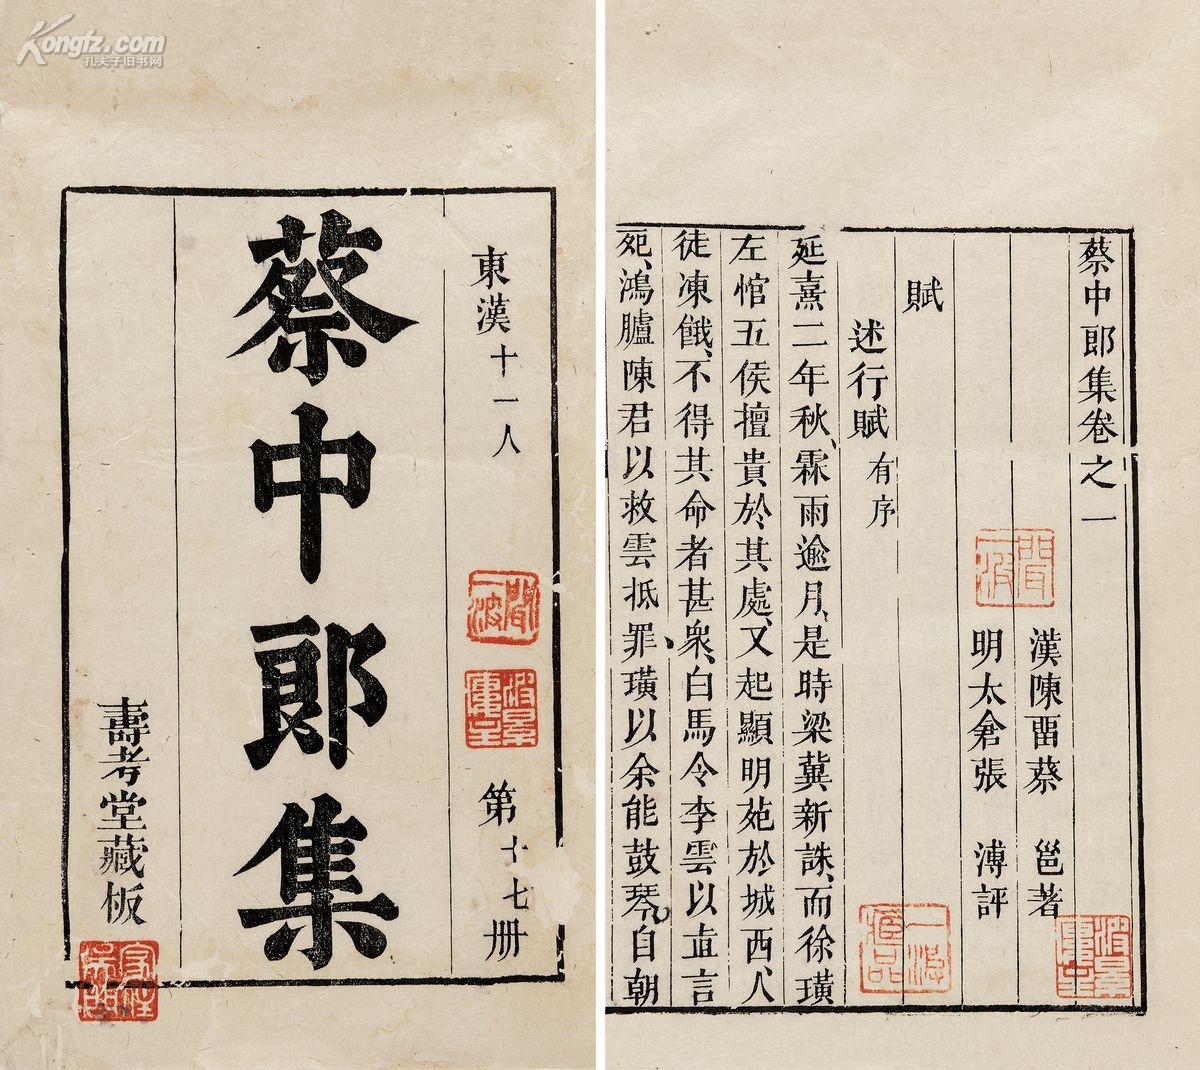 Kongfz.com
孔夫子旧书网
東漢十一人
第十七册
蔡中郎集
壽考堂藏板
蔡中郎集卷之一
漢陳畱蔡邕著
明太倉張溥評
賦
述行賦有序
延熹二年秋、霖雨逾月、是時梁冀新誅、而徐璜
左悺五侯擅貴於其處、又起顯明苑於城西、人
徒凍餓、不得其命者甚衆、白馬令李雲以直言
死、鴻臚陳君以救雲抵罪、璜以余能鼓琴、白朝